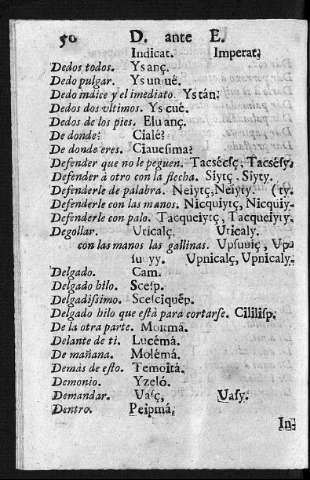 50 D. ante E.
Indicat. Imperat.
Dedos todos. Ys anç.
Dedo pulgar. Ys un uè.
Dedo indice y el imediato. Ys tán.
Dedos dos vltimos. Ys cuè.
Dedos de los pies. Elu anç.
De donde? Cialé?
De donde eres. Ciauesima?
Defender que no le peguen. Tacsècsç, Tacsèsy.
Defender à otro con la flecha. Siytç. Siyty.
Defenderle de palabra. Neiytç, Neiyty. (ty.
Defenderle con las manos. Nicquiytç, Nicquiy-
Defenderle con palo. Tacqueiytç, Tacqueiyty.
Degollar. Uticalç. Uticaly.
con las manos las gallinas. Upsuuiç, Upsu
uyy. Upnicalç, Upnicaly.
Delgado. Cam.
Delgado hilo. Scesp.
Delgadissimo. Scesciquèp.
Delgado hilo que està para cortarse. Cililisp.
De la otra parte. Mokmá.
Delante de ti. Lucémá.
De mañana. Molémá.
Demàs de esto. Temoità.
Demonio. Yzeló.
Demandar. Uasç, Uasy.
Dentro. Peipmá.
In-